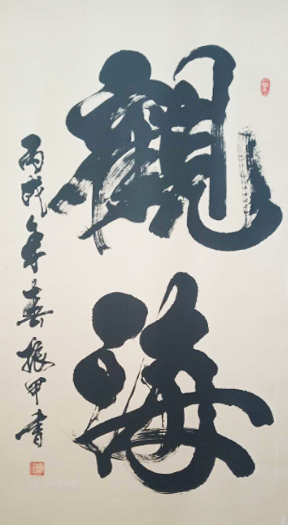 觀海
丙戌年春振甲書